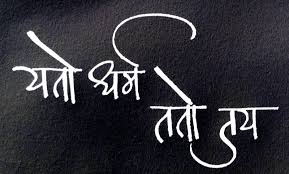 यतो धर्म
ततो जय